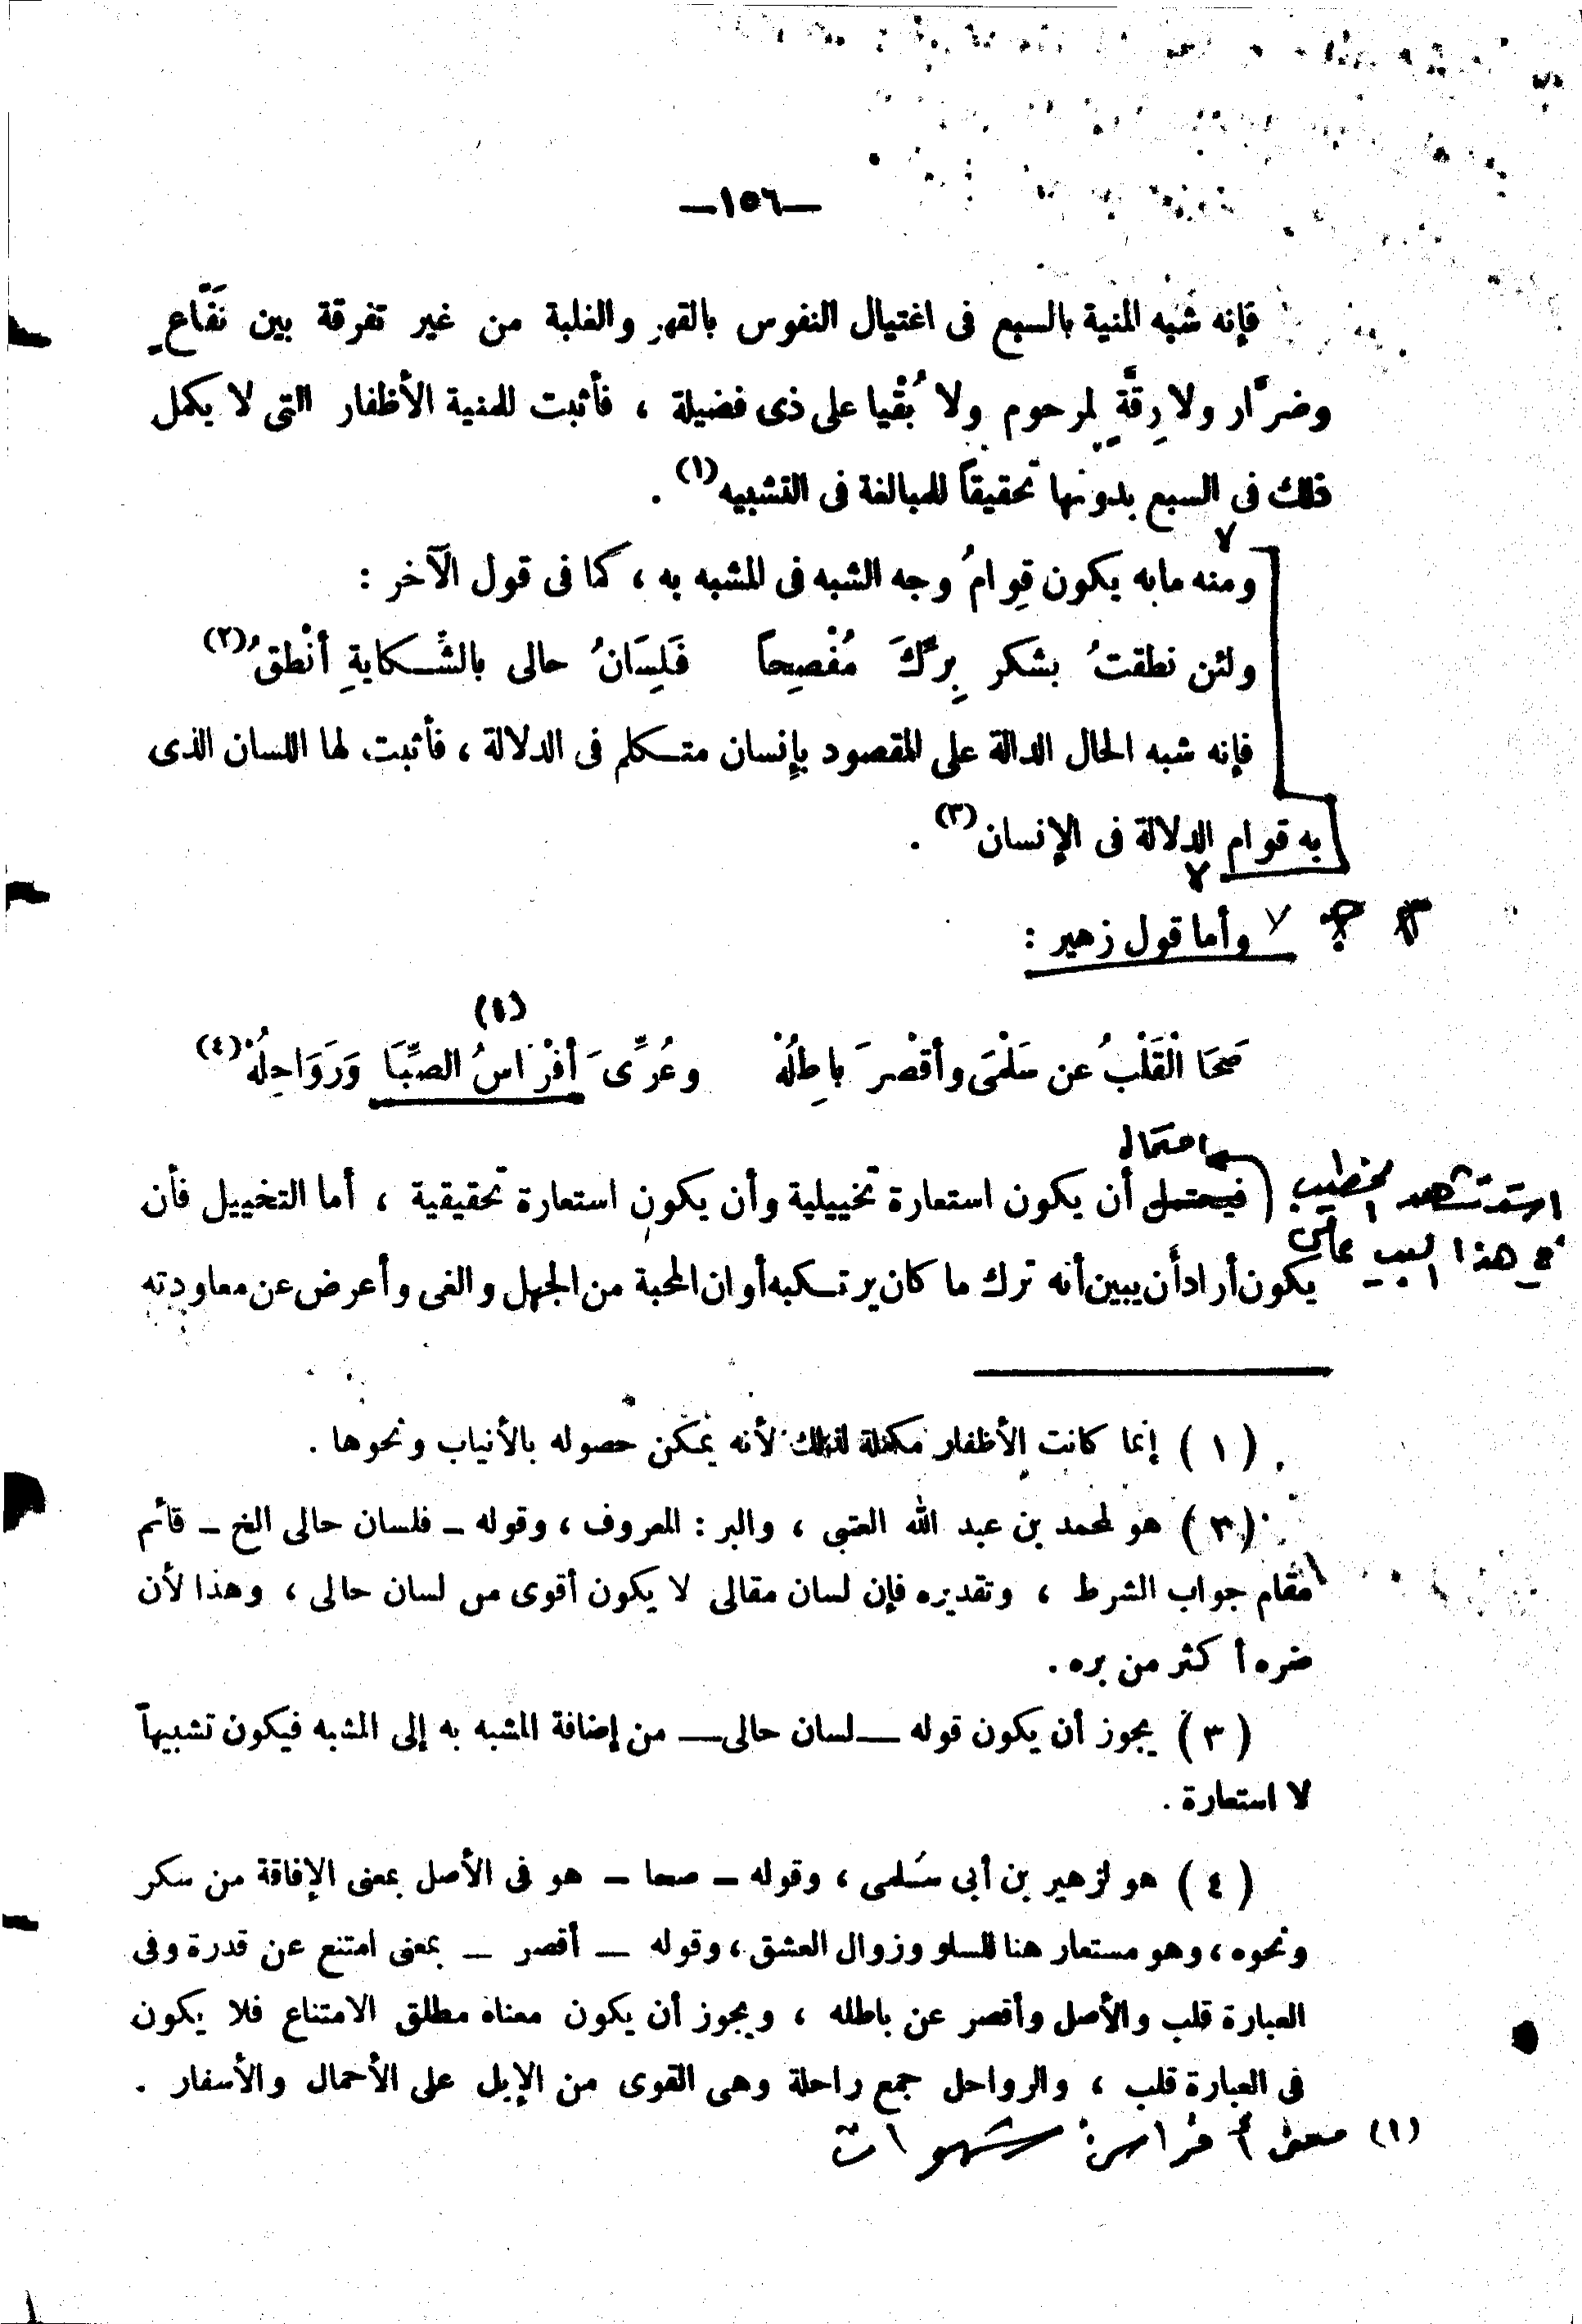 —١٥٦—
فإنه شبه المنية بالسبع فى اغتيال النفوس بالقهر والغلبة من غير تفرقة بين نَفَّاعٍ
وضرَّار ولا رِقَّةٍ لمرحوم ولا بُقْيا على ذى فضيلة ، فأثبت للمنية الأظفار التى لا يكمل
ذلك فى السبع بدونها تحقيقاً للمبالغة فى التشبيه(١) .
ومنه مابه يكون قِوامُ وجه الشبه فى المشبه به ، كما فى قول الآخر :
ولئن نطقتُ بشكر بِرِّكَ مُفْصِحاً فَلِسَانُ حالى بالشِّكايةِ أنْطقُ(٢)
فإنه شبه الحال الدالة على المقصود بإنسان متكلم فى الدلالة ، فأثبت لها اللسان الذى
به قوام الدلالة فى الإنسان(٣) .
وأما قول زهير :
(١)
صَحَا الْقَلْبُ عن سَلْمَى وأقْصرَ باطِلُهْ وعُرِّىَ أفْرَاسُ الصِّبَا وَرَوَاحِلُهْ(٤)
احتمال
استشهد الخطيب فيحتمل أن يكون استعارة تخييلية وأن يكون استعارة تحقيقية ، أما التخييل فأن
هذا البيت على يكون أراد أن يبين أنه ترك ما كان يرتكبه أوان المحبة من الجهل والغى وأعرض عن معاودته
(١) إنما كانت الأظفار مكملة لذلك لأنه يمكن حصوله بالأنياب ونحوها .
(٣) هو لمحمد بن عبد الله العتبى ، والبر : المعروف ، وقوله – فلسان حالى الخ – قائم
مقام جواب الشرط ، وتقديره فإن لسان مقالى لا يكون أقوى من لسان حالى ، وهذا لأن
ضره أكثر من بره .
(٣) يجوز أن يكون قوله — لسان حالى — من إضافة المشبه به إلى المشبه فيكون تشبيهاً
لا استعارة .
(٤) هو لزهير بن أبى سُلمى ، وقوله – صحا – هو فى الأصل بمعنى الإفاقة من سكر
ونحوه ، وهو مستعار هنا للسلو وزوال العشق ، وقوله – أقصر – بمعنى امتنع عن قدرة وفى
العبارة قلب والأصل وأقصر عن باطله ، ويجوز أن يكون معناه مطلق الامتناع فلا يكون
فى العبارة قلب ، والرواحل جمع راحلة وهى القوى من الإبل على الأحمال والأسفار .
(١) معنى أفراس: شهوات